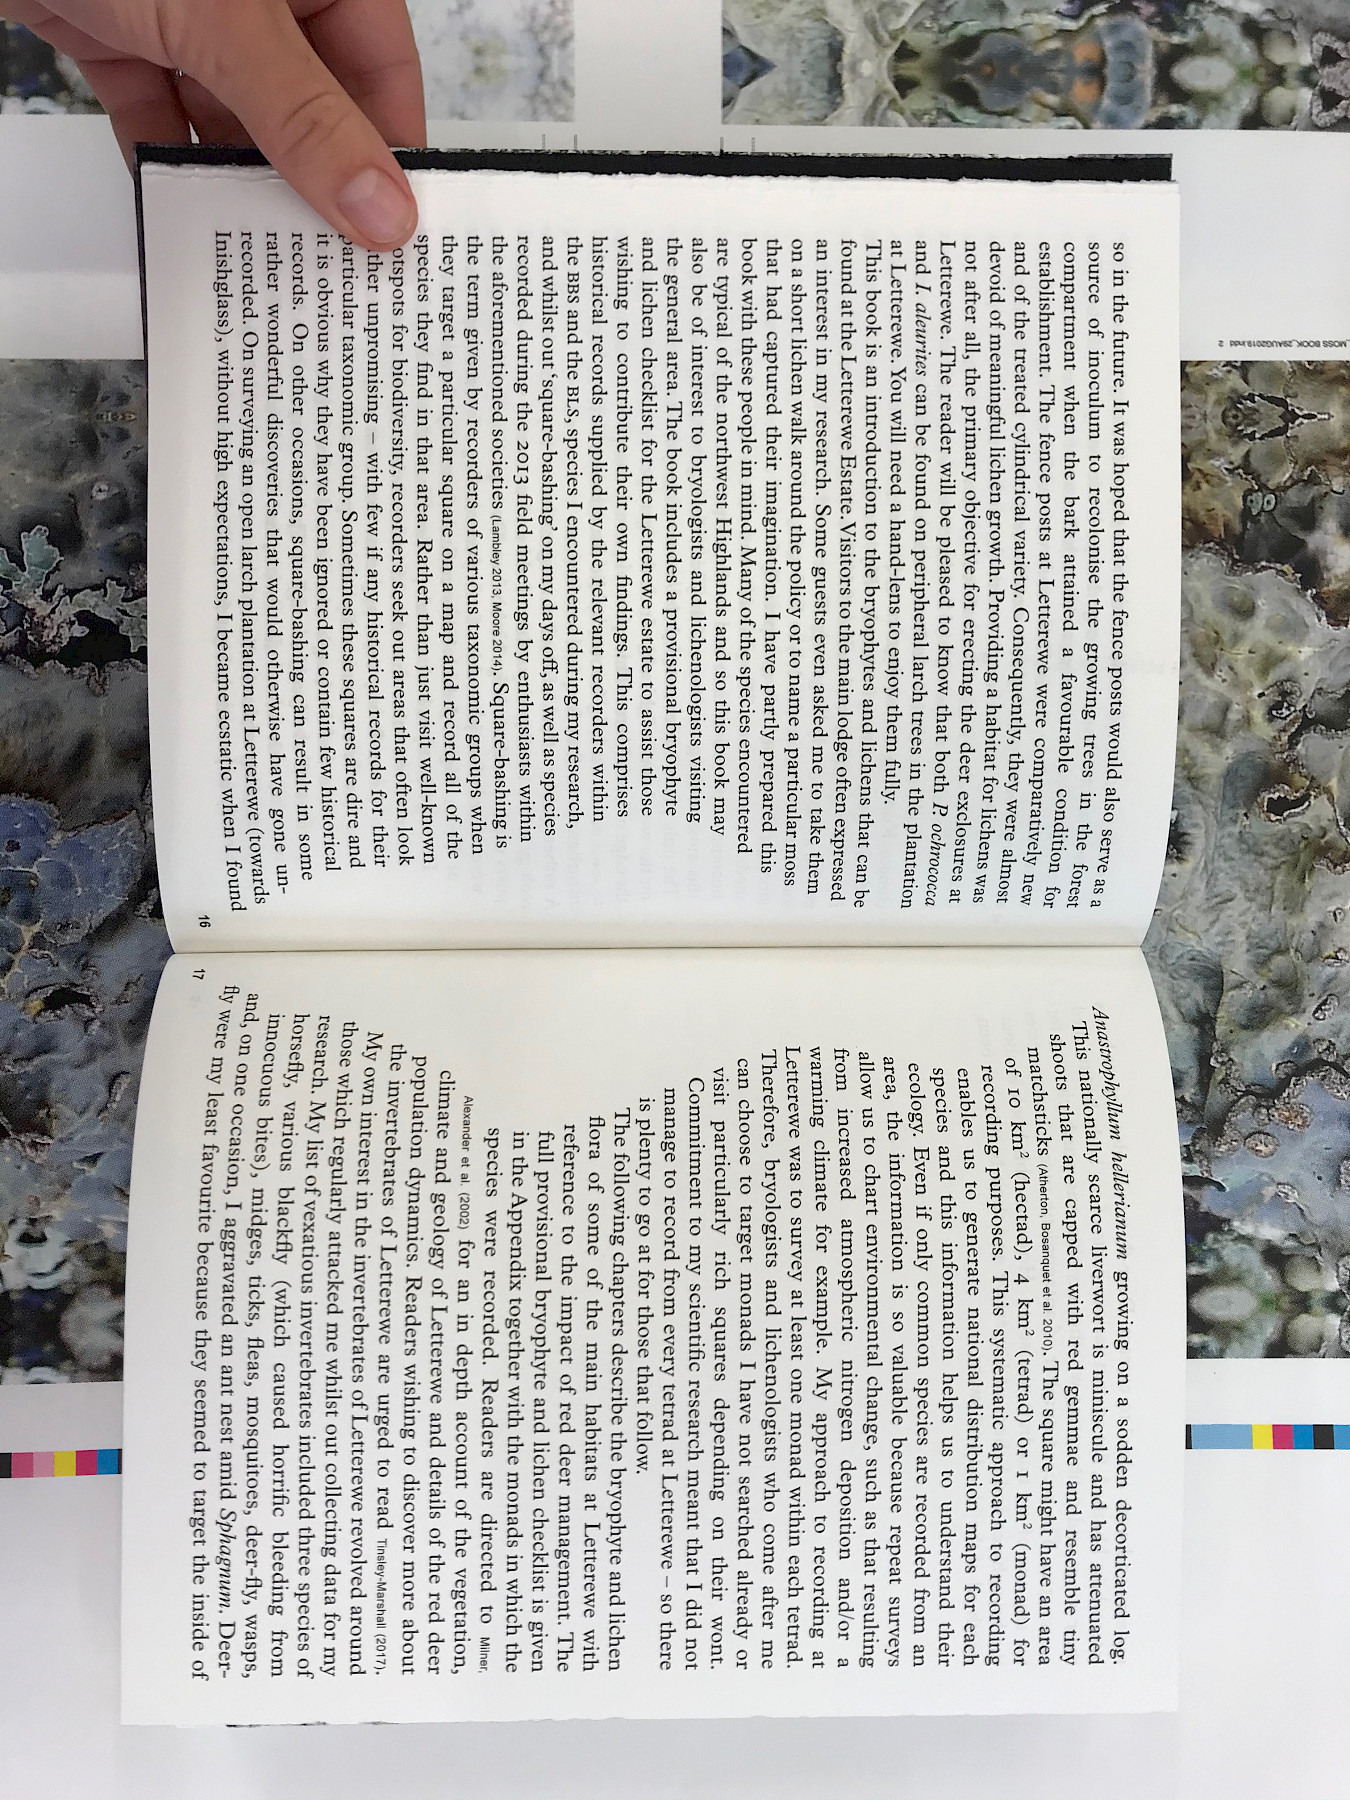 so in the future. It was hoped that the fence posts would also serve as a
source of inoculum to recolonise the growing trees in the forest
compartment when the bark attained a favourable condition for
establishment. The fence posts at Letterewe were comparatively new
and of the treated cylindrical variety. Consequently, they were almost
devoid of meaningful lichen growth. Providing a habitat for lichens was
not after all, the primary objective for erecting the deer exclosures at
Letterewe. The reader will be pleased to know that both P. ochrococca
and I. aleurites can be found on peripheral larch trees in the plantation
at Letterewe. You will need a hand-lens to enjoy them fully.
This book is an introduction to the bryophytes and lichens that can be
found at the Letterewe Estate. Visitors to the main lodge often expressed
an interest in my research. Some guests even asked me to take them
on a short lichen walk around the policy or to name a particular moss
that had captured their imagination. I have partly prepared this
book with these people in mind. Many of the species encountered
are typical of the northwest Highlands and so this book may
also be of interest to bryologists and lichenologists visiting
the general area. The book includes a provisional bryophyte
and lichen checklist for the Letterewe estate to assist those
wishing to contribute their own findings. This comprises
historical records supplied by the relevant recorders within
the BBS and the BLS, species I encountered during my research,
and whilst out 'square-bashing' on my days off, as well as species
recorded during the 2013 field meetings by enthusiasts within
the aforementioned societies (Lambley 2013, Moore 2014). Square-bashing is
the term given by recorders of various taxonomic groups when
they target a particular square on a map and record all of the
species they find in that area. Rather than just visit well-known
otspots for biodiversity, recorders seek out areas that often look
ther unpromising – with few if any historical records for their
particular taxonomic group. Sometimes these squares are dire and
it is obvious why they have been ignored or contain few historical
records. On other occasions, square-bashing can result in some
rather wonderful discoveries that would otherwise have gone un-
recorded. On surveying an open larch plantation at Letterewe (towards
Inishglass), without high expectations, I became ecstatic when I found
16
Anastrophyllum hellerianum growing on a sodden decorticated log.
This nationally scarce liverwort is miniscule and has attenuated
shoots that are capped with red gemmae and resemble tiny
matchsticks (Atherton, Bosanquet et al. 2010). The square might have an area
of 10 km² (hectad), 4 km² (tetrad) or 1 km² (monad) for
recording purposes. This systematic approach to recording
enables us to generate national distribution maps for each
species and this information helps us to understand their
ecology. Even if only common species are recorded from an
area, the information is so valuable because repeat surveys
allow us to chart environmental change, such as that resulting
from increased atmospheric nitrogen deposition and/or a
warming climate for example. My approach to recording at
Letterewe was to survey at least one monad within each tetrad.
Therefore, bryologists and lichenologists who come after me
can choose to target monads I have not searched already or
visit particularly rich squares depending on their wont.
Commitment to my scientific research meant that I did not
manage to record from every tetrad at Letterewe – so there
is plenty to go at for those that follow.
The following chapters describe the bryophyte and lichen
flora of some of the main habitats at Letterewe with
reference to the impact of red deer management. The
full provisional bryophyte and lichen checklist is given
in the Appendix together with the monads in which the
species were recorded. Readers are directed to Milner,
Alexander et al. (2002) for an in depth account of the vegetation,
climate and geology of Letterewe and details of the red deer
population dynamics. Readers wishing to discover more about
the invertebrates of Letterewe are urged to read Tinsley-Marshall (2017).
My own interest in the invertebrates of Letterewe revolved around
those which regularly attacked me whilst out collecting data for my
research. My list of vexatious invertebrates included three species of
horsefly, various blackfly (which caused horrific bleeding from
innocuous bites), midges, ticks, fleas, mosquitoes, deer-fly, wasps,
and, on one occasion, I aggravated an ant nest amid Sphagnum. Deer-
fly were my least favourite because they seemed to target the inside of
17
MOSS BOOK_29AUG2019.indd 2